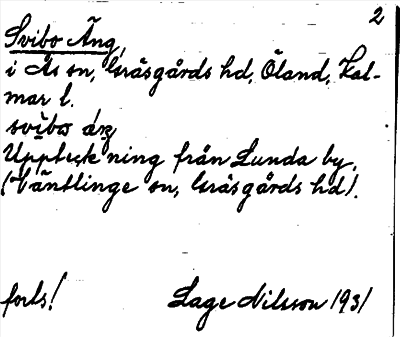 2
Svibo Äng,
i Ås sn, Gräsgårds hd, Öland, Kal-
mar l.
svibω áŋ
Uppteckning från Lunda by,
(Väntlinge sn, Gräsgårds hd).
forts! Lage Nilsson 1931